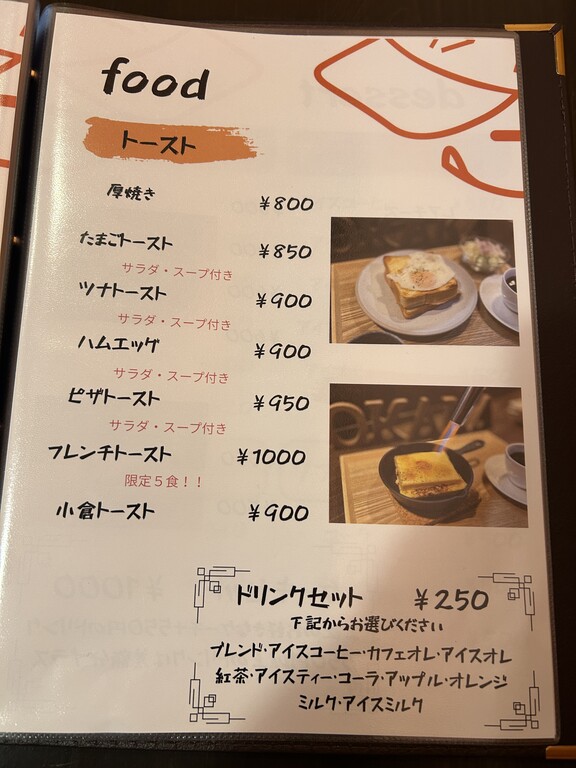 food
トースト
厚焼き ¥800
たまごトースト ¥850
サラダ・スープ付き
ツナトースト ¥900
サラダ・スープ付き
ハムエッグ ¥900
サラダ・スープ付き
ピザトースト ¥950
サラダ・スープ付き
フレンチトースト ¥1000
限定5食！！
小倉トースト ¥900
ドリンクセット ¥250
下記からお選びください
ブレンド・アイスコーヒー・カフェオレ・アイスオレ
紅茶・アイスティー・コーラ・アップル・オレンジ
ミルク・アイスミルク